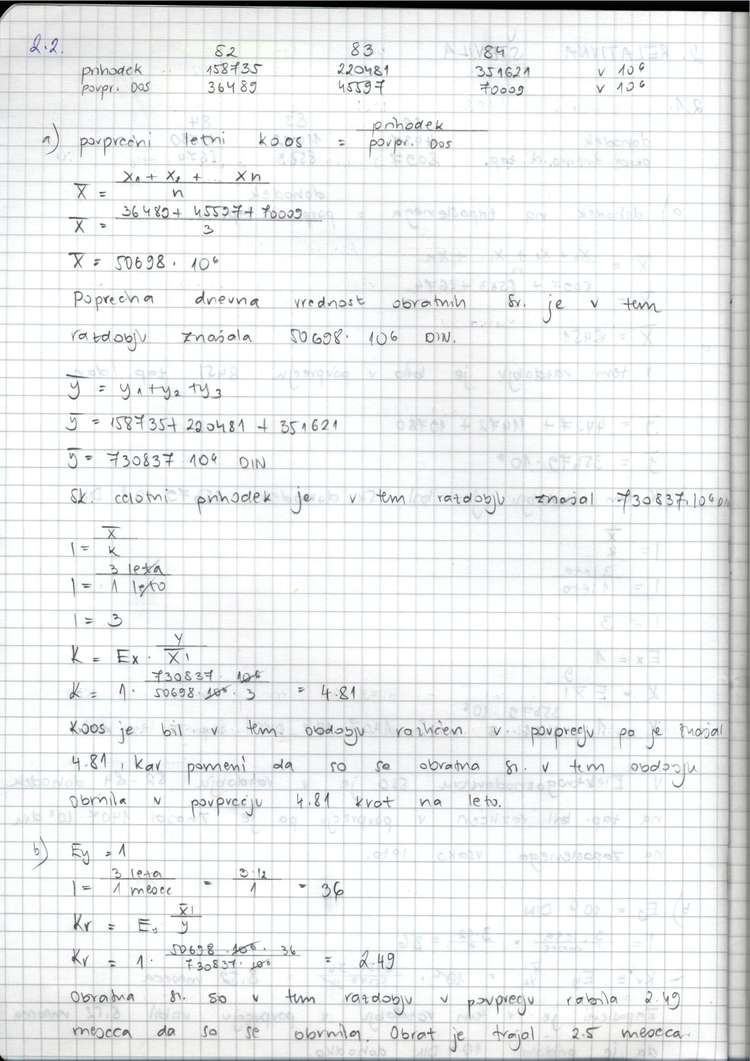 2.2.
82 83 84
prihodek 158735 220481 351621 v 10⁶
povpr. DOS 36489 45597 70009 v 10⁶
a) povprečni letni KOOS = prihodek / povpr. DOS
X̄ = X₁ + X₂ + .. Xn / n
X̄ = 36489 + 45597 + 70009 / 3
X̄ = 50698 · 10⁶
Poprečna dnevna vrednost obratnih sr. je v tem
razdobju znašala 50698 · 10⁶ DIN.
ȳ = y₁ + y₂ + y₃
ȳ = 158735 + 220481 + 351621
ȳ = 730837 10⁶ DIN
Sk. celotni prihodek je v tem razdobju znašal 730837.10⁶ DIN
l = X̄ / k
l = 3 leta / 1 leto
l = 3
K = Ex · Y / X̄ l
K = 1 · 730837 · 10⁶ / 50698 · 10⁶ · 3 = 4.81
KOOS je bil v tem obdobju različen v povprečju pa je znašal
4.81, kar pomeni da so se obratna sr. v tem obdobju
obrnila v povprečju 4.81 krat na leto.
b) Ey = 1
l = 3 leta / 1 mesec = 3·12 / 1 = 36
Kr = Ey X̄ l / y
Kr = 1 · 50698 · 10⁶ · 36 / 730837 · 10⁶ = 2.49
Obratna sr. so v tem razdobju v povprečju rabila 2.49
meseca da so se obrnila. Obrat je trajal 2.5 meseca.